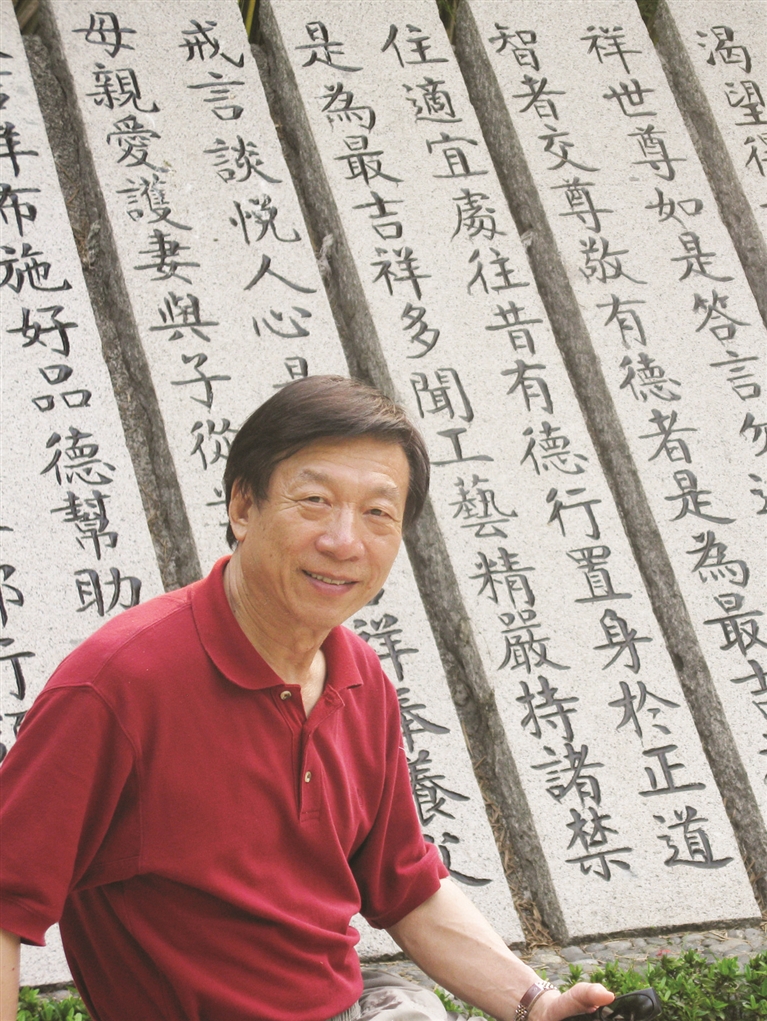 渴望得
祥世尊如是答言勿
智者交尊敬有德者是為最吉
住適宜處往昔有德行置身於正道
是為最吉祥多聞工藝精嚴持諸禁
戒言談悅人心是 祥奉養父
母親愛護妻與子從
祥布施好品德幫助
行